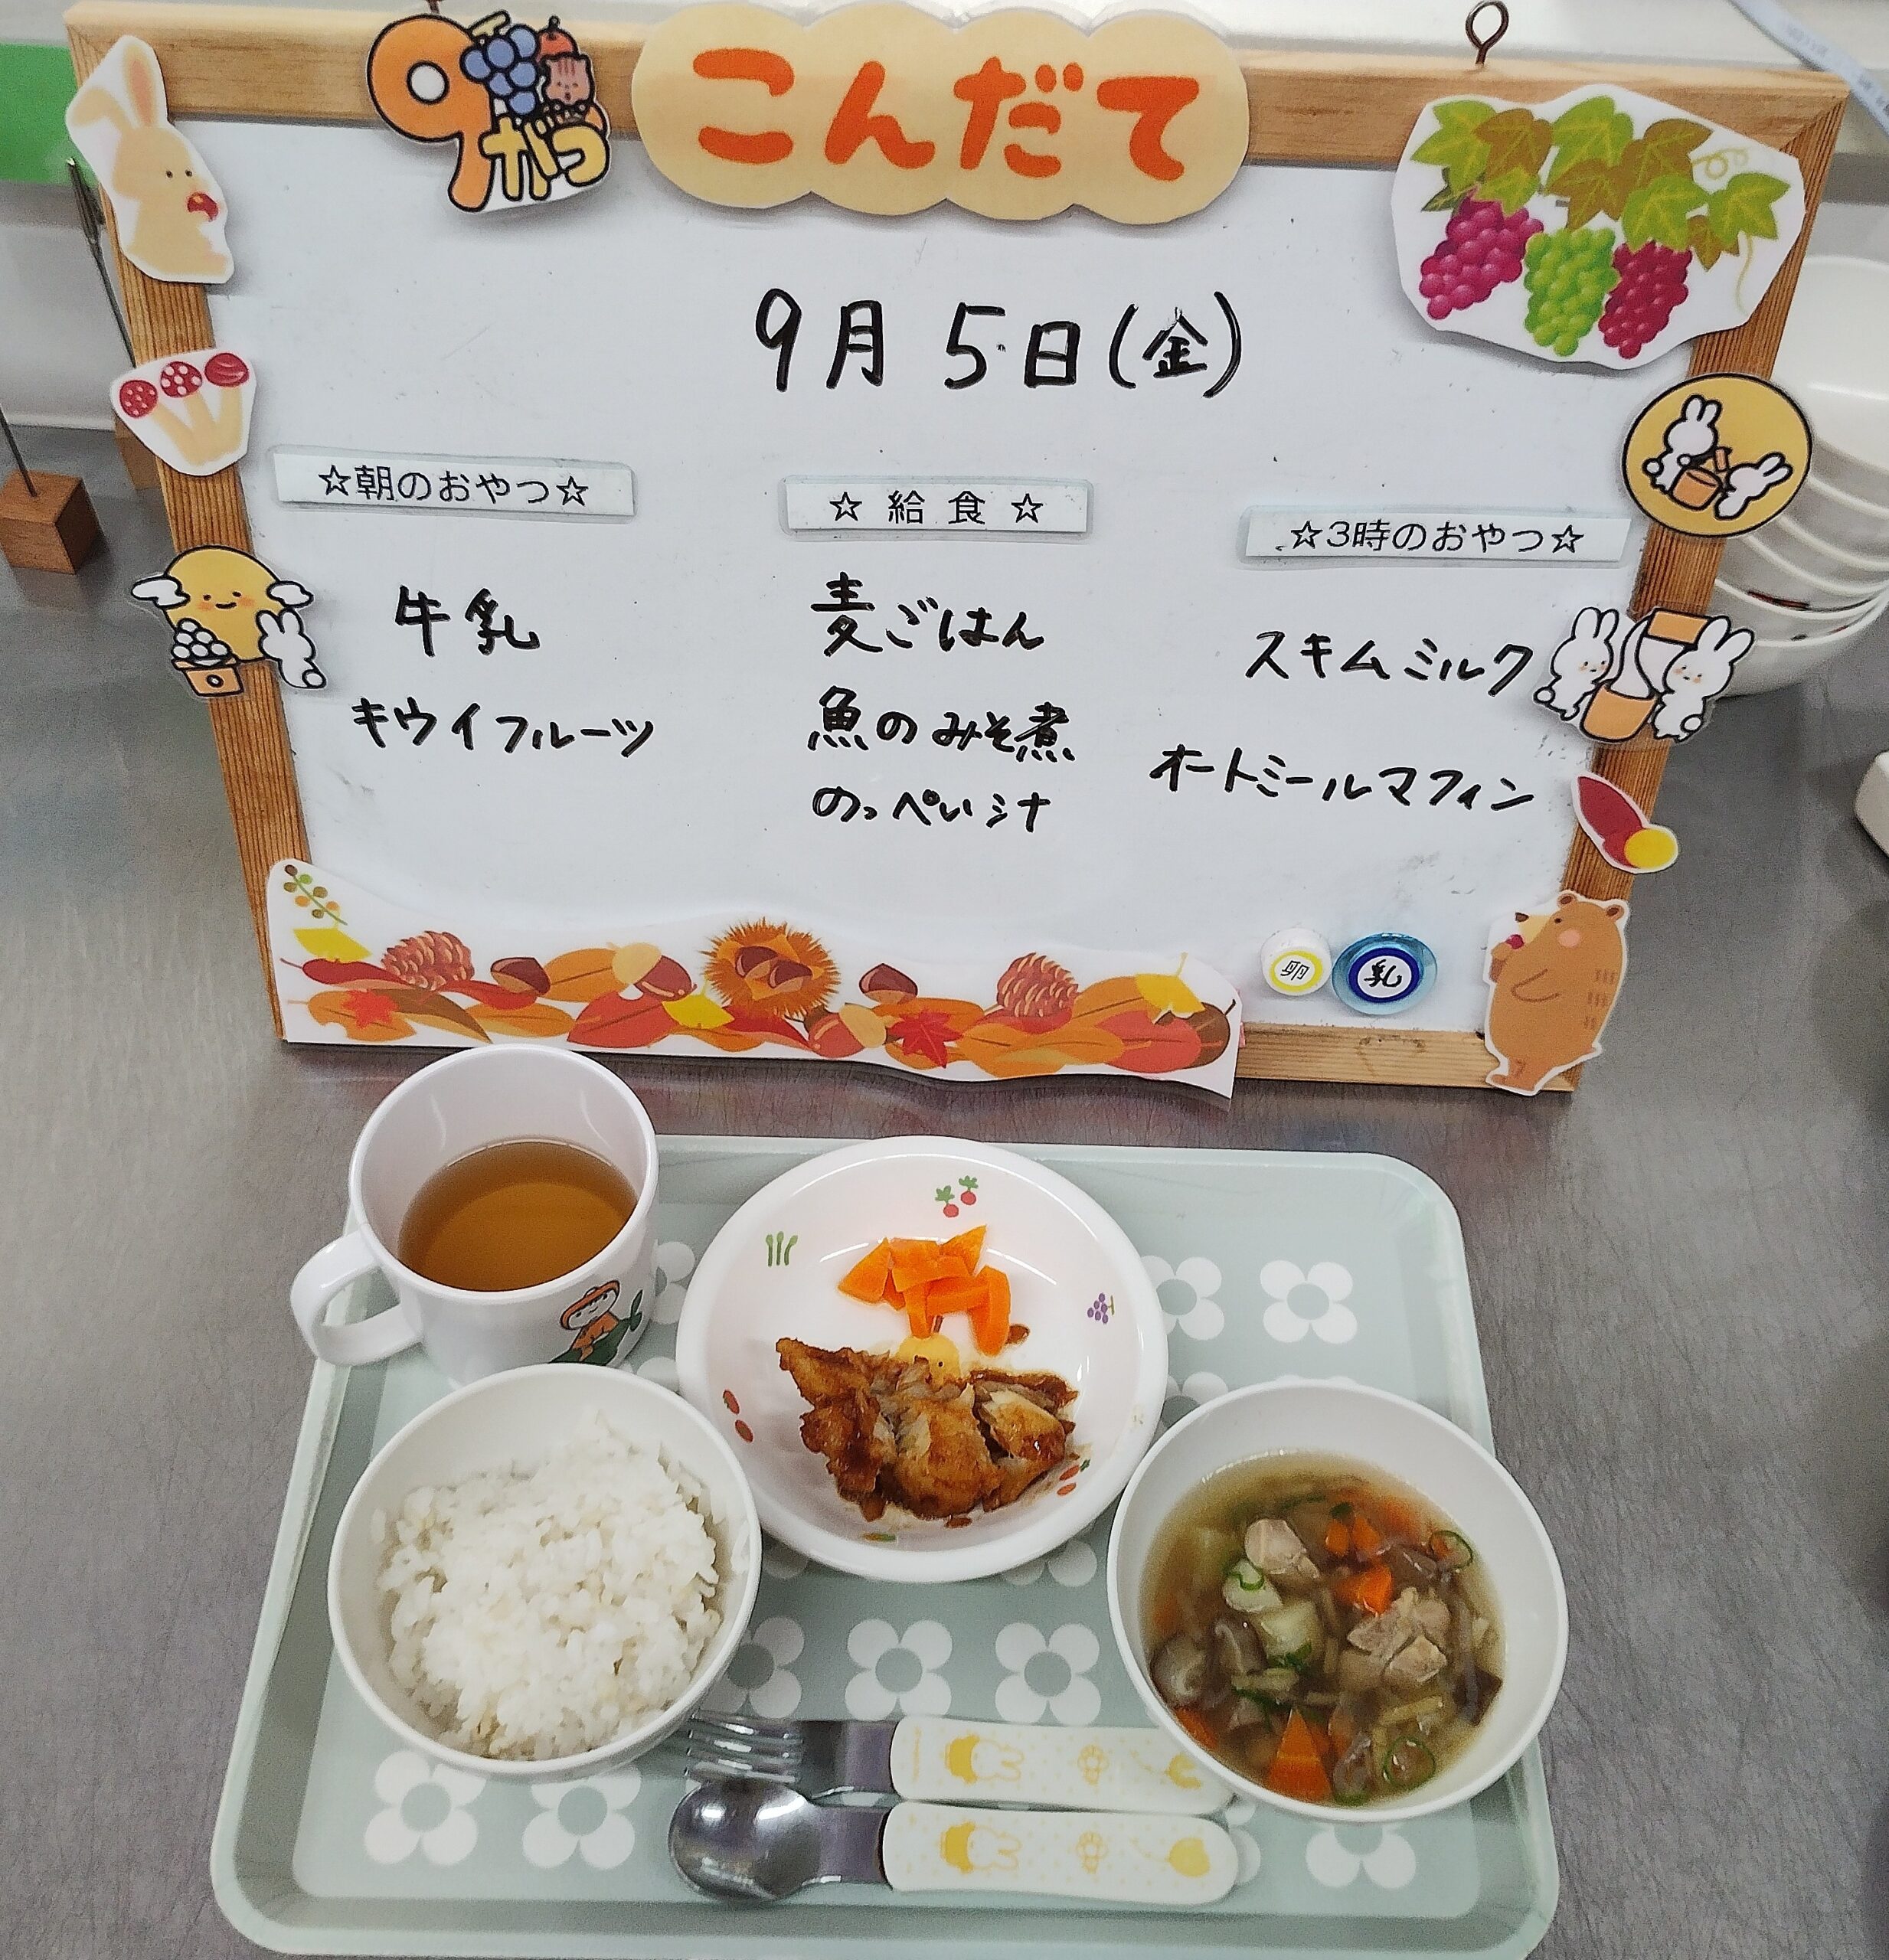 9がつ
こんだて
9月 5日(金)
☆朝のおやつ☆
牛乳
キウイフルーツ
☆ 給 食 ☆
麦ごはん
魚のみそ煮
のっぺい汁
☆3時のおやつ☆
スキムミルク
オートミールマフィン
卵
乳